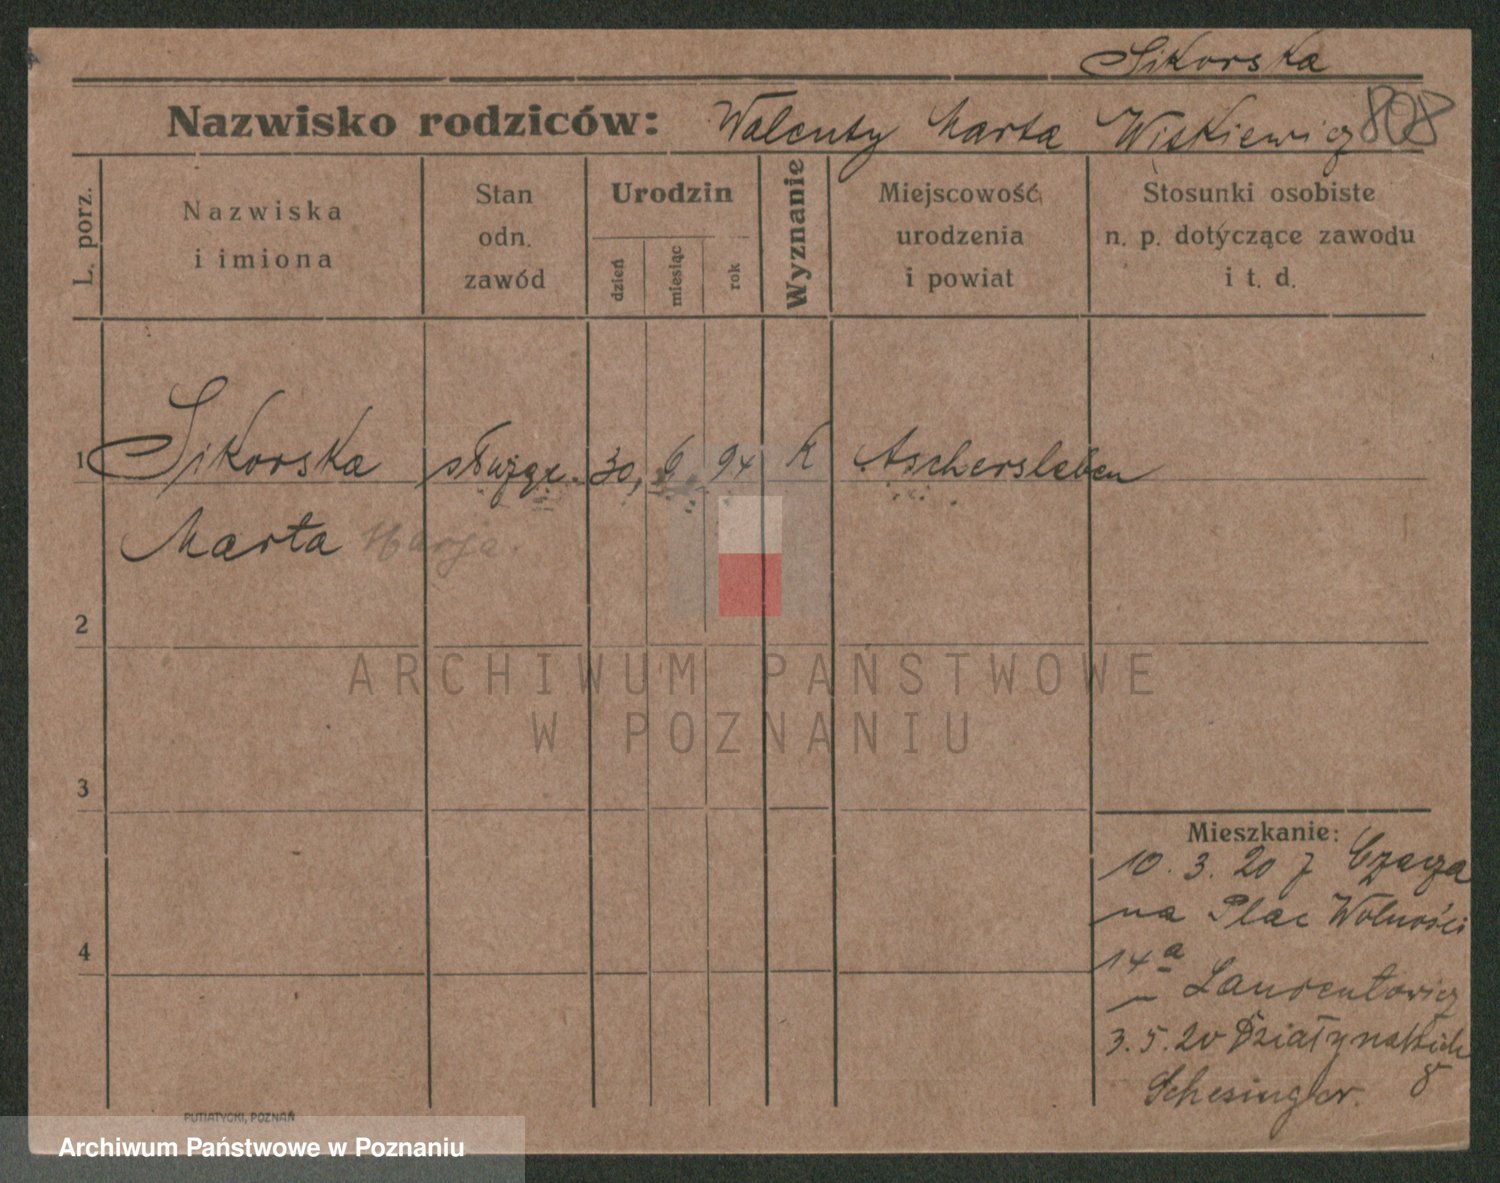 Sikorska
Nazwisko rodziców: Walenty Marta Wiśkiewicz 808
L. porz.
Nazwiska
i imiona
Stan
odn.
zawód
Urodzin
dzień
miesiąc
rok
Wyznanie
Miejscowość
urodzenia
i powiat
Stosunki osobiste
n. p. dotyczące zawodu
i t. d.
1 Sikorska służąc. 30, 6 94 k Aschersleben
Marta Marja.
2
3
4
ARCHIWUM PAŃSTWOWE
W POZNANIU
Mieszkanie:
10. 3. 20 z Czacza
na Plac Wolności
14a
Laurentowicz
3. 5. 20 Działyńskich
8
Schesingler.
PUTIATYCKI, POZNAŃ
Archiwum Państwowe w Poznaniu